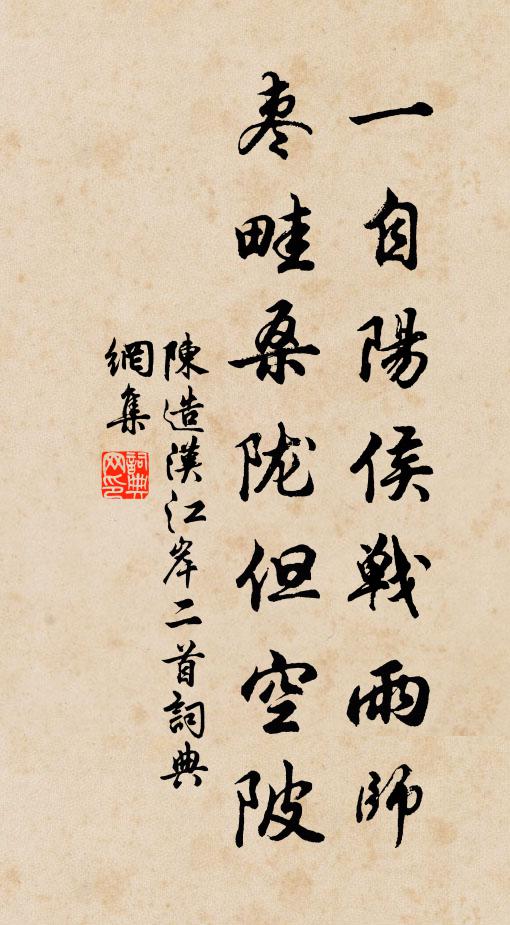 一自陽侯戰雨師
枣畦桑陇但空陂
陳造漢江岸二首詞典
網集
詞典網印